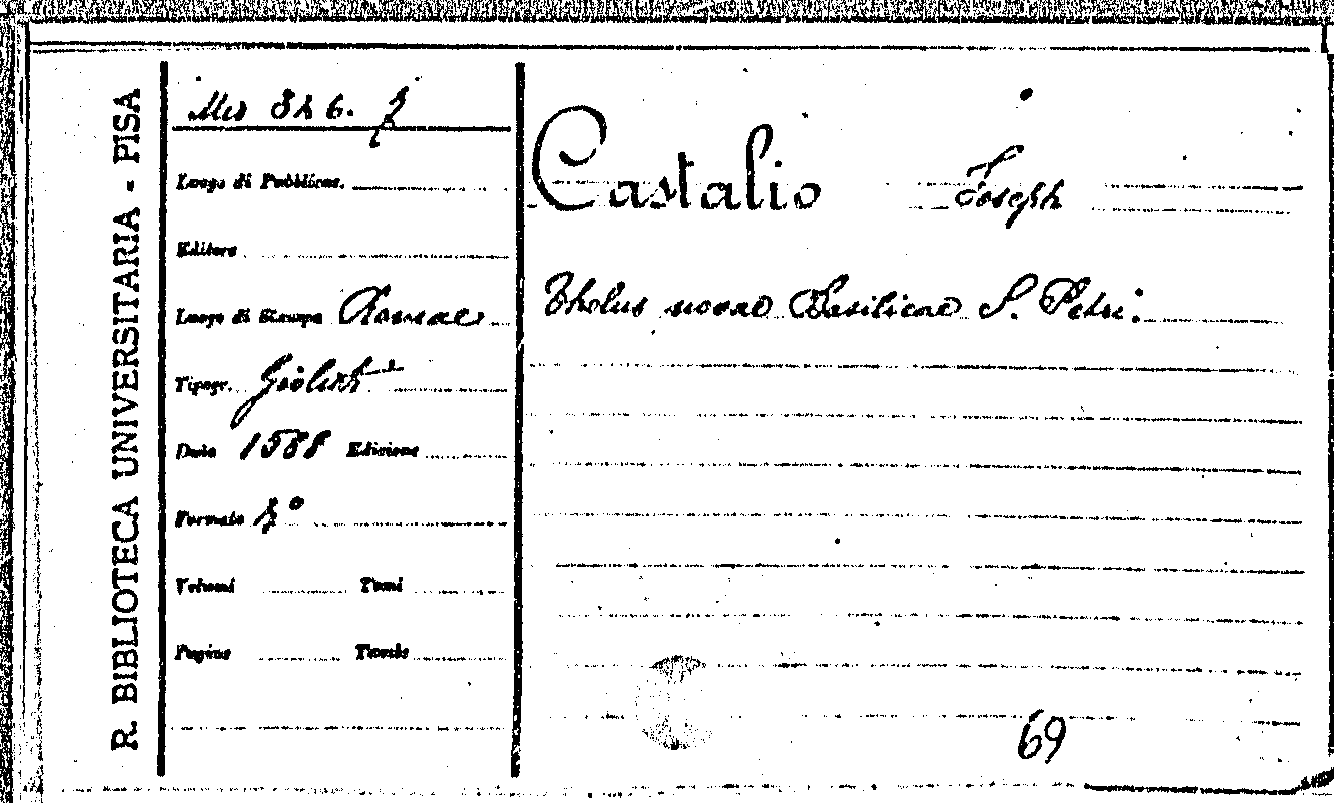 R. BIBLIOTECA UNIVERSITARIA - PISA
Mis 326. 7
Luogo di Pubblicaz.
Editore
Luogo di Stampa Romae
Tipogr.
Data 1588 Edizione
Formato 4°
Volumi Tomi
Pagine Tavole
Castalio Joseph
Tholus novae Basilicae S. Petri.
69